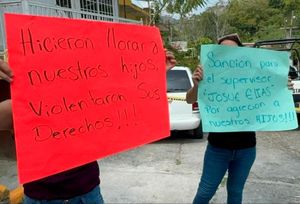 Hicieron llorar a
nuestros hijos,
Violentaron Sus
Derechos!!!
Sanción para
el supervisor
"JOSUE ELIAS"
Por agresión a
nuestros HIJOS!!!